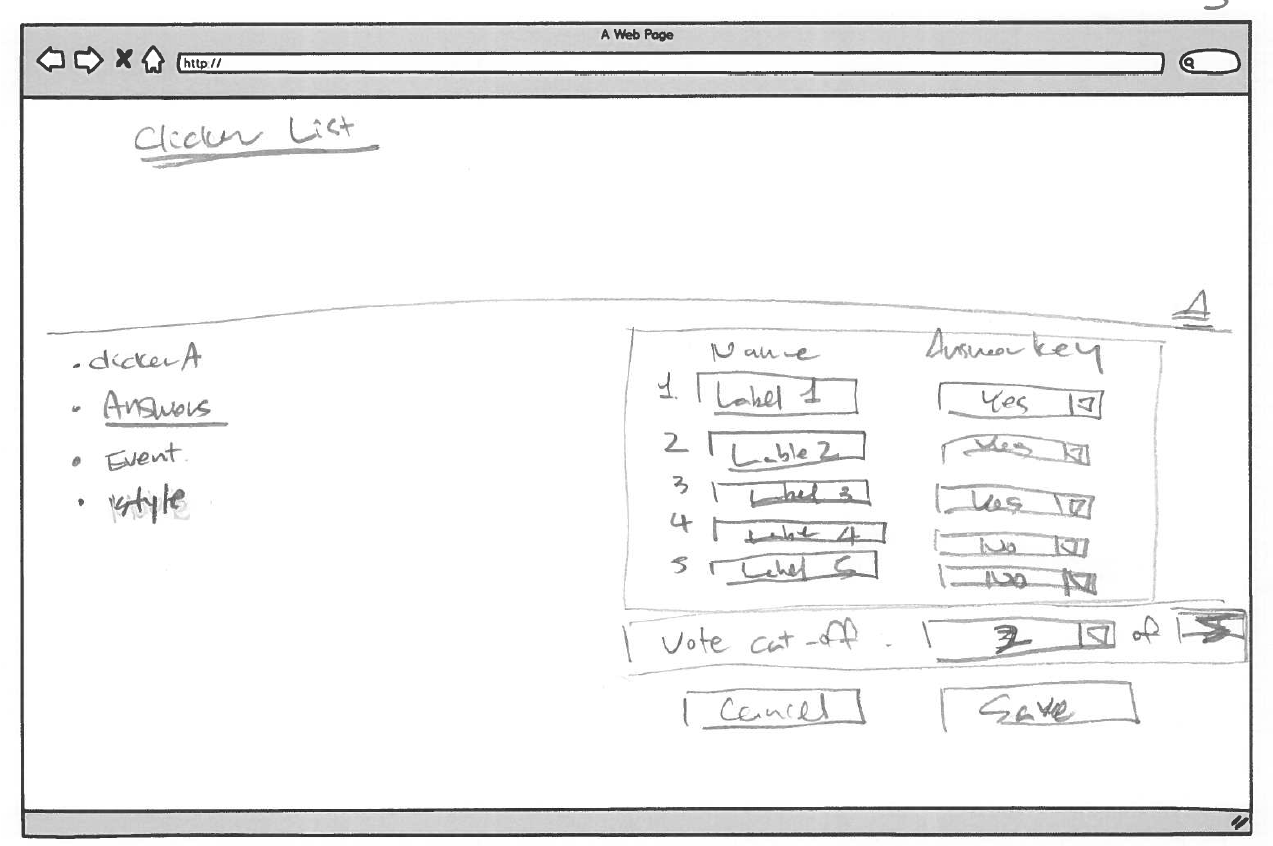 A Web Page
http://
Clicker List
A
• clicker A
• Answers
• Event
• style
Name Answer key
1. Label 1 Yes
2 Lable 2 Yes
3 Label 3 Yes
4 Label 4 No
5 Label 5 No
Vote cut-off. of 5
Cancel Save